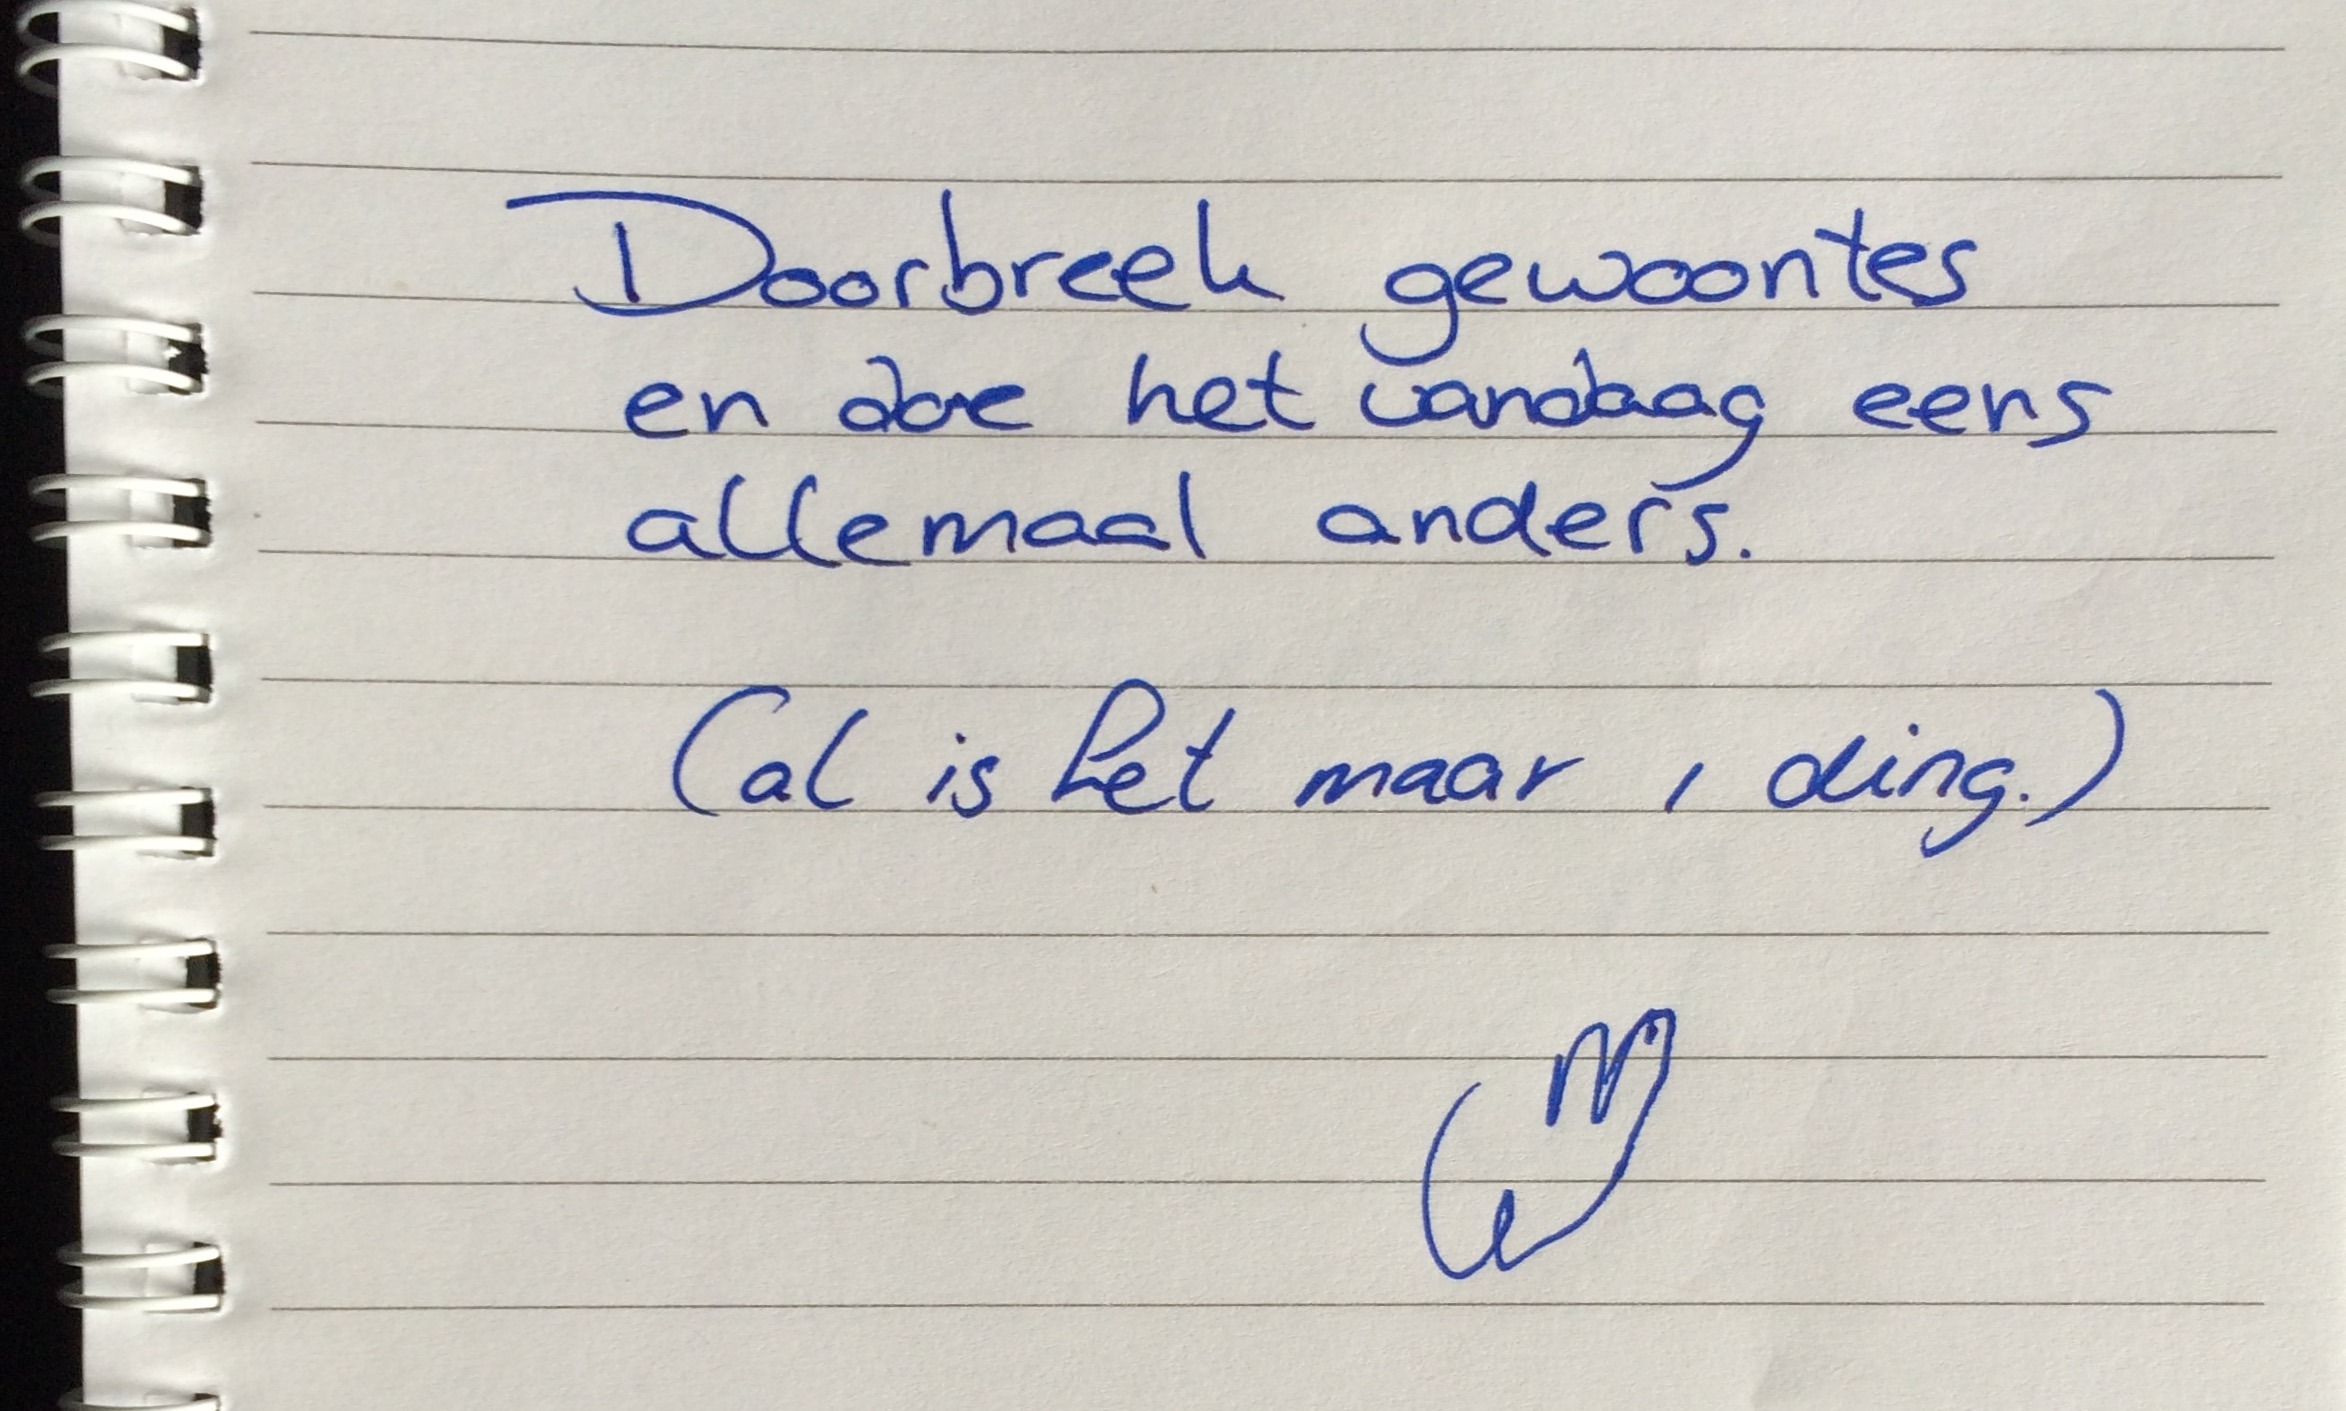 Doorbreek gewoontes
en doe het vandaag eens
allemaal anders.
(al is het maar 1 ding.)